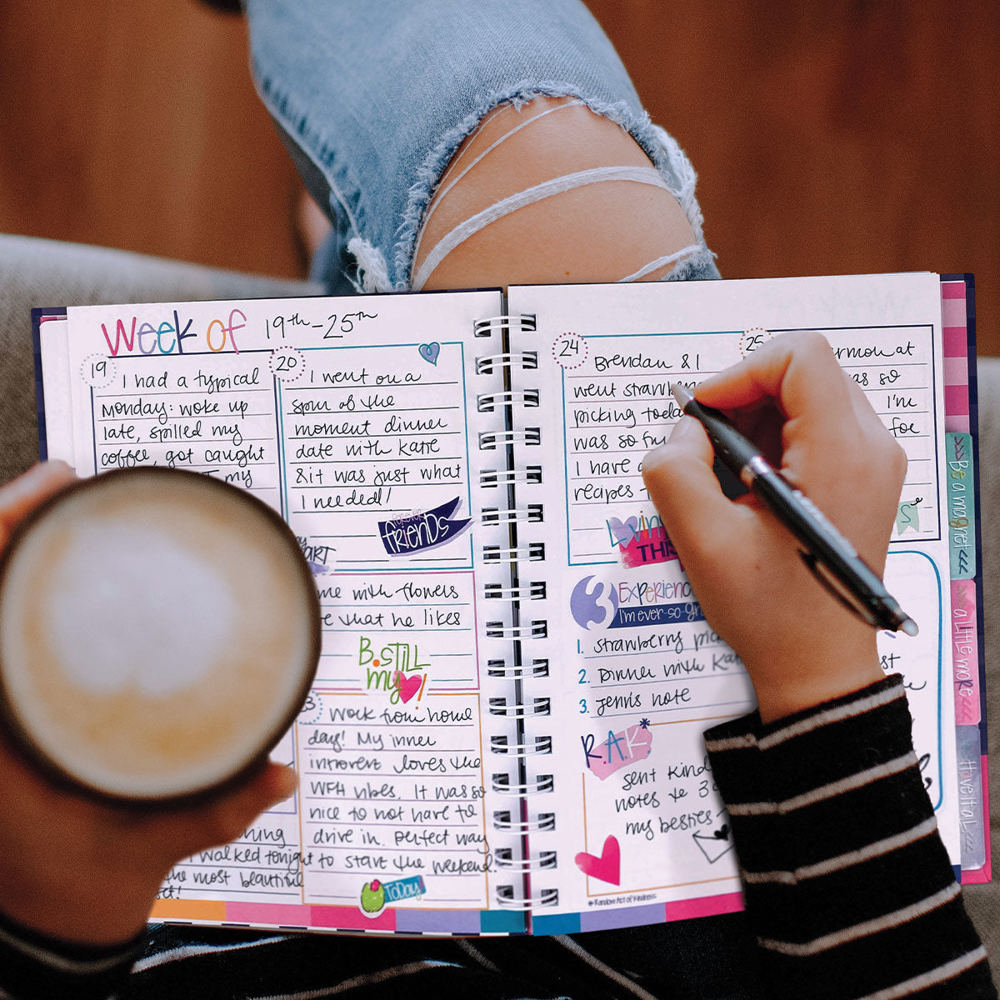 Week of 19th-25th
19
I had a typical
Monday: woke up
late, spilled my
coffee, got caught
my
20
I went on a
spur of the
moment dinner
date with Kate
& it was just what
I needed!
FOREVER
friends
ART
me with flowers
e that he likes
B.STILL
my!
Work from home
day! My inner
introvert loves the
WFH vibes. It was so
nice to not have to
drive in. Perfect way
to start the weekend.
TODAY
walked tonight
the most beautiful
24
Brendan & I
went
picking today
was so
I have
recipes
25
at
as so
I'm
for
THIS
3 Experiences
I'm ever so
1. Strawberry
2. Dinner with Kate
3. Jenni's note
R.A.K*
Sent kind
notes to 3
my besties
*Random Act of Kindness
Be a magnet <<<
a little more <<<